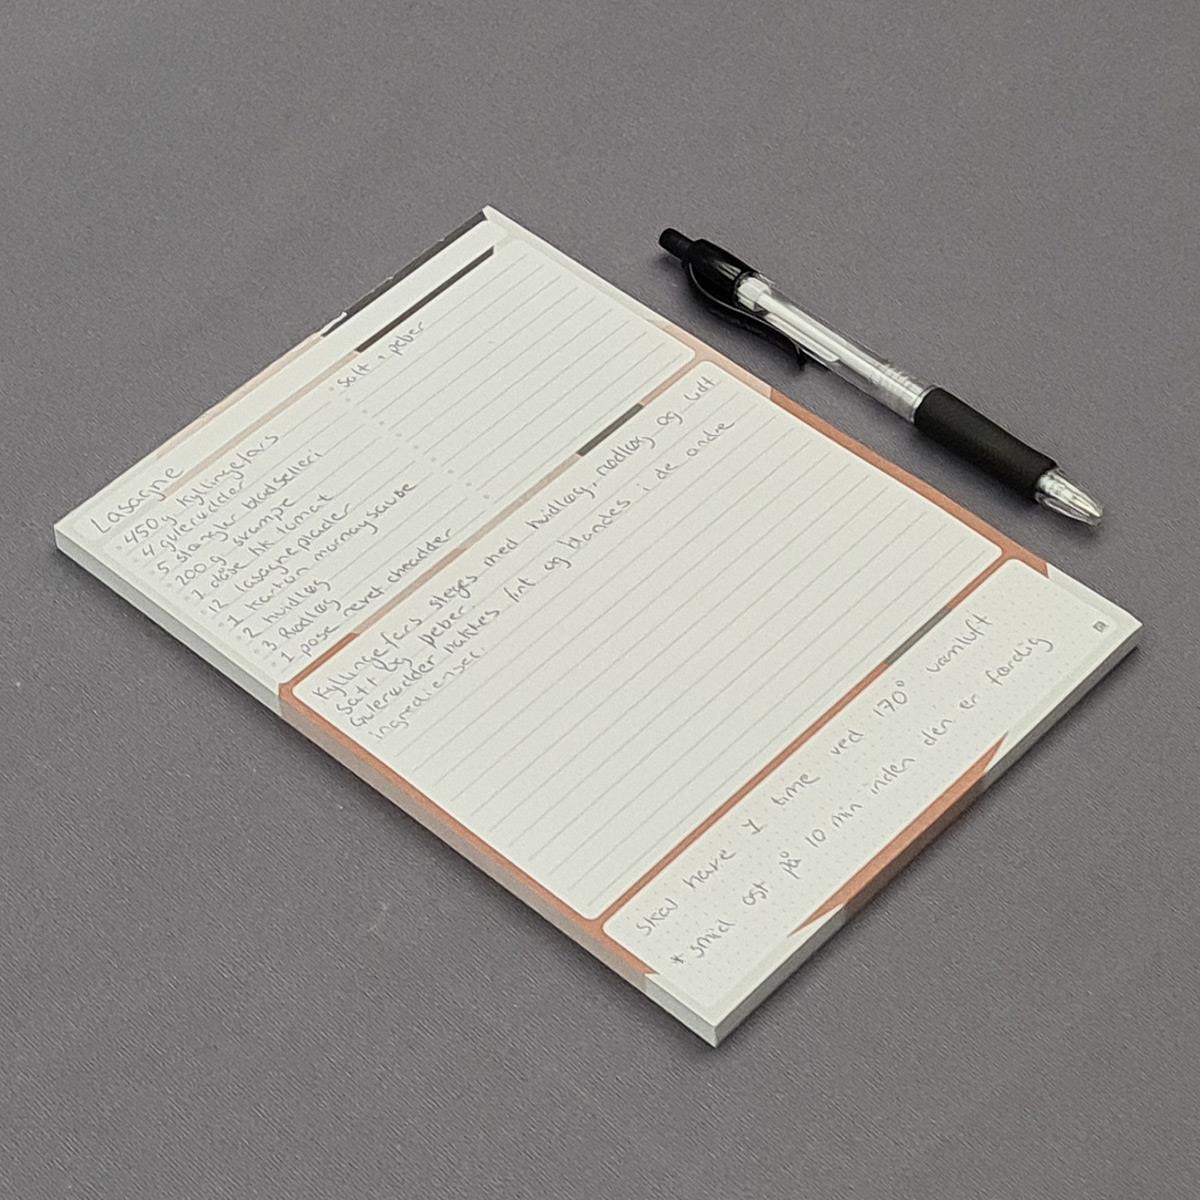 Lasagne
450g kyllingefars
4 gulerødder
5 stængler bladselleri
200 g svampe
1 dåse hk tomat
12 lasagneplader
1 karton mornaysauce
2 hvidløg
3 Rødløg
1 pose revet cheadder
Salt + peber
Kyllingefars steges med hvidløg, rødløg og lidt
Salt og peber.
Gulerødder hakkes fint og blandes i de andre
ingredienser.
Skal have 1 time ved 170° varmluft
* smid ost på 10 min inden den er færdig